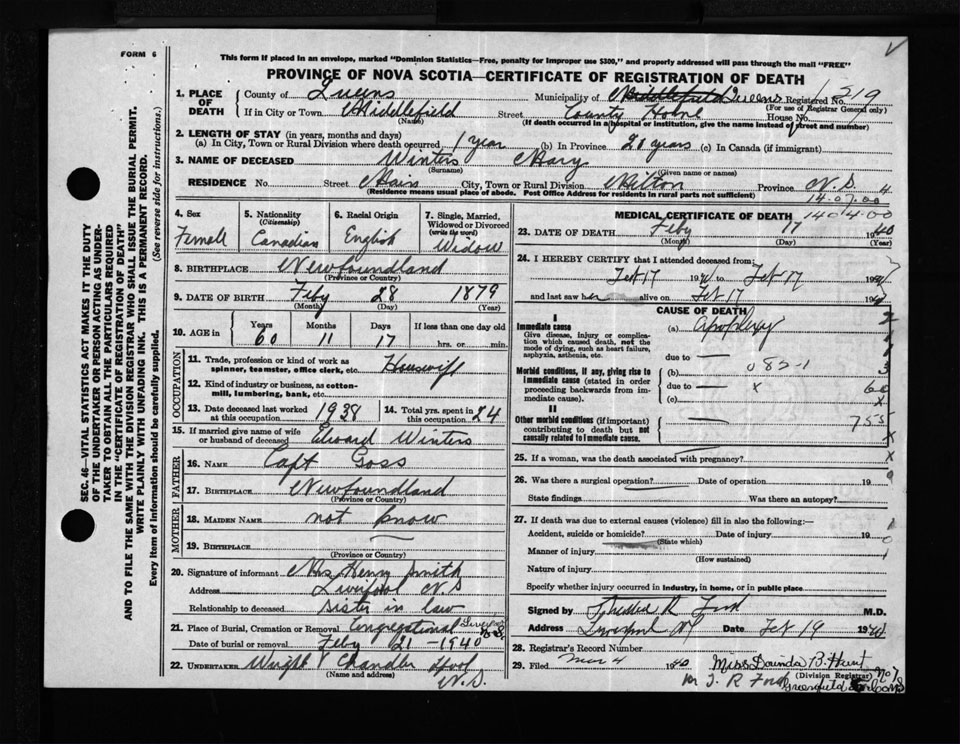 FORM 6
This form if placed in an envelope, marked "Dominion Statistics—Free, penalty for improper use $300," and properly addressed will pass through the mail "FREE"
PROVINCE OF NOVA SCOTIA—CERTIFICATE OF REGISTRATION OF DEATH
SEC. 46—VITAL STATISTICS ACT MAKES IT THE DUTY
OF THE UNDERTAKER OR PERSON ACTING AS UNDERTAKER
TO OBTAIN ALL THE PARTICULARS REQUIRED
IN THE "CERTIFICATE OF REGISTRATION OF DEATH"
AND TO FILE THE SAME WITH THE DIVISION REGISTRAR WHO SHALL ISSUE THE BURIAL PERMIT.
WRITE PLAINLY WITH UNFADING INK. THIS IS A PERMANENT RECORD.
Every item of information should be carefully supplied. (See reverse side for instructions.)
1. PLACE OF DEATH
County of Queens Municipality of Middlefield Queens Registered No. 219
(For use of Registrar General only)
If in City or Town Middlefield Street County Home House No.
(Name) (If death occurred in a hospital or institution, give the name instead of street and number)
2. LENGTH OF STAY (in years, months and days)
(a) In City, Town or Rural Division where death occurred 1 year (b) In Province 20 years (c) In Canada (if immigrant)
3. NAME OF DECEASED Winters Mary
(Surname) (Given name or names)
RESIDENCE No. Street Main City, Town or Rural Division Milton Province N.S. 4
(Residence means usual place of abode. Post Office Address for residents in rural parts not sufficient)
14.07.00
4. Sex Female
5. Nationality (Citizenship) Canadian
6. Racial Origin English
7. Single, Married, Widowed or Divorced (write the word) Widow
8. BIRTHPLACE Newfoundland
(Province or Country)
9. DATE OF BIRTH Feby 28 1879
(Month) (Day) (Year)
10. AGE in Years 60 Months 11 Days 17 If less than one day old hrs. or min.
OCCUPATION
11. Trade, profession or kind of work as spinner, teamster, office clerk, etc. Housewife
12. Kind of industry or business, as cotton-mill, lumbering, bank, etc.
13. Date deceased last worked at this occupation 1938
14. Total yrs. spent in this occupation 24
15. If married give name of wife or husband of deceased Edward Winters
FATHER
16. NAME Capt Goss
17. BIRTHPLACE Newfoundland
(Province or Country)
MOTHER
18. MAIDEN NAME not know
19. BIRTHPLACE
(Province or Country)
20. Signature of informant Mrs Henry Smith
Address Liverpool N.S
Relationship to deceased Sister in law
21. Place of Burial, Cremation or Removal Congregational Liverpool N.S.
Date of burial or removal Feby 21 - 1940
22. UNDERTAKER Wright Chandler Lpool N.S.
(Name and address)
MEDICAL CERTIFICATE OF DEATH 1404.00
23. DATE OF DEATH Feby 17 1940
(Month) (Day) (Year)
24. I HEREBY CERTIFY that I attended deceased from:
Feb 17 19 to Feb 17 19
and last saw her alive on Feb 17 19
CAUSE OF DEATH
I
Immediate cause
Give disease, injury or complication which caused death, not the mode of dying, such as heart failure, asphyxia, asthenia, etc.
(a) Apoplexy
due to
Morbid conditions, if any, giving rise to immediate cause (stated in order proceeding backwards from immediate cause).
(b) 082-1
due to x
(c)
II
Other morbid conditions (if important) contributing to death but not causally related to immediate cause.
755
25. If a woman, was the death associated with pregnancy?
26. Was there a surgical operation? Date of operation 19
State findings Was there an autopsy?
27. If death was due to external causes (violence) fill in also the following:—
Accident, suicide or homicide? Date of injury 19
(State which)
Manner of injury
(How sustained)
Nature of injury
Specify whether injury occurred in industry, in home, or in public place
Signed by Ford M.D.
Address Liverpool NS Date Feb 19 1940
28. Registrar's Record Number
29. Filed Mar 4 1940 Miss Dorinda B. Hunt
(Division Registrar) No 7
M T. R Ford Greenfield Queens Co NS